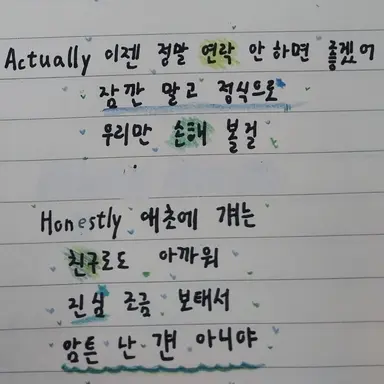 Actually 이젠 정말 연락 안 하면 좋겠어
잠깐 말고 정식으로
우리만 손해 볼걸
Honestly 애초에 걔는
친구로도 아까워
진심 조금 보태서
암튼 난 걘 아니야